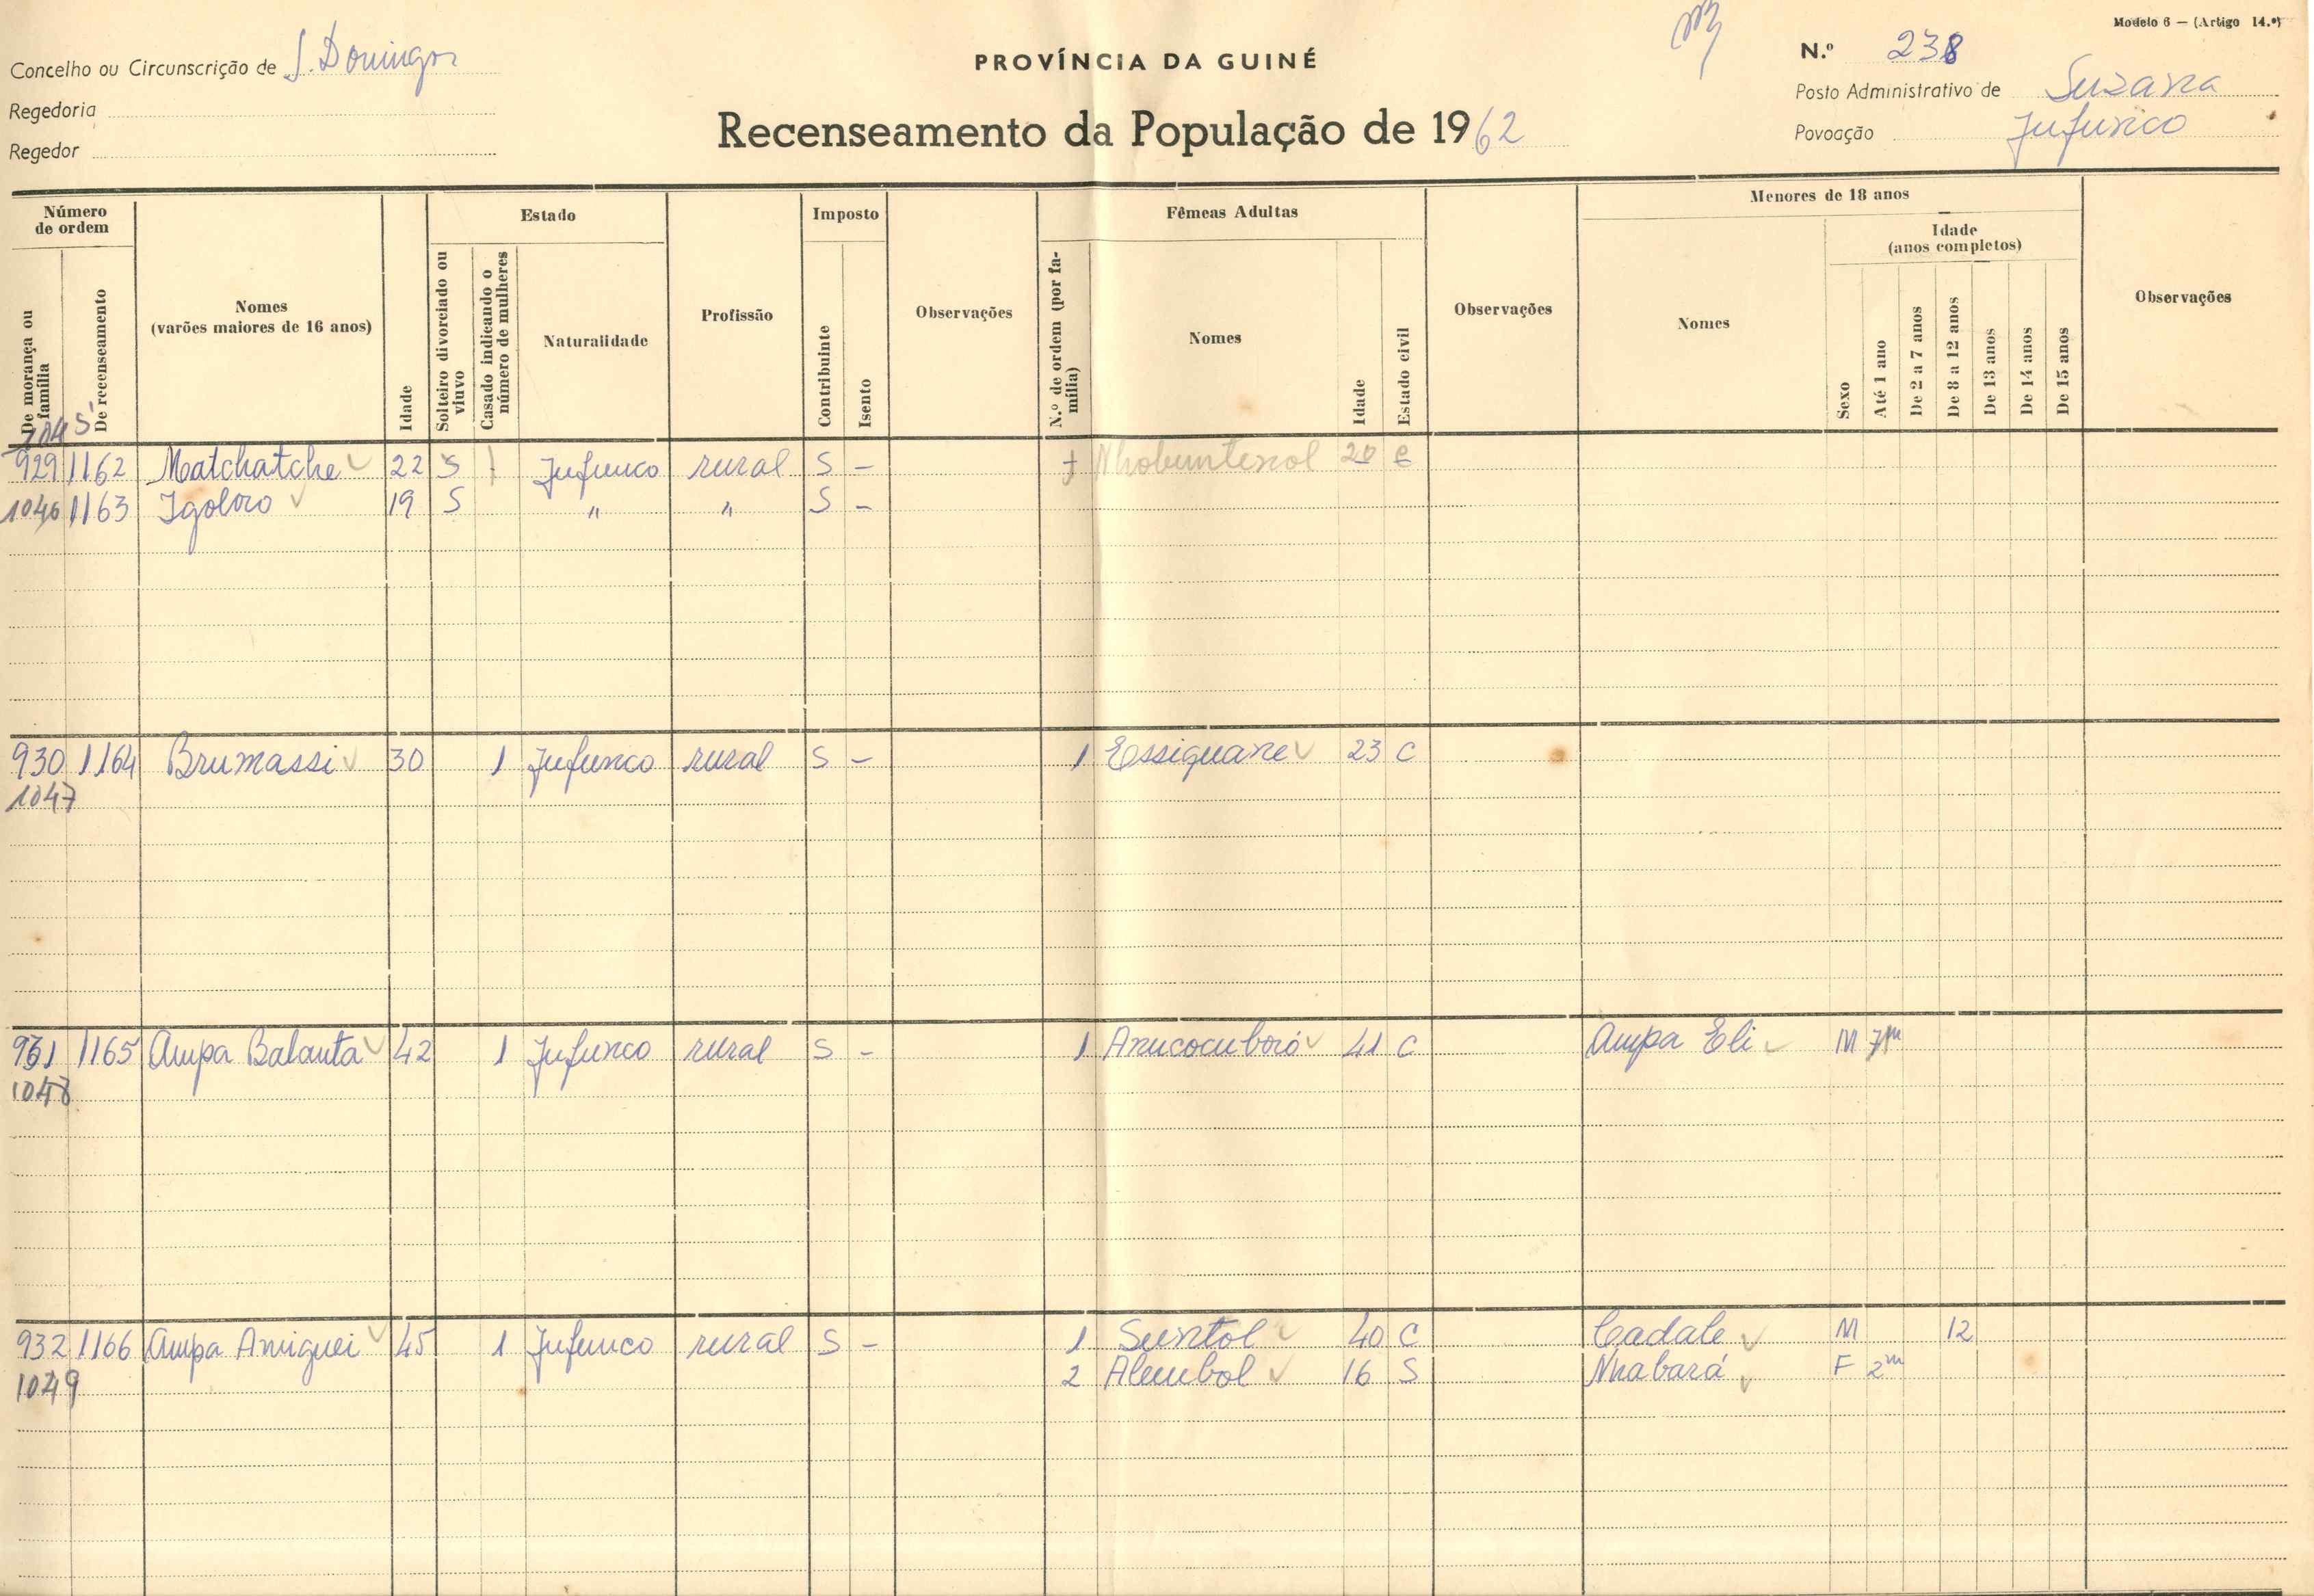 Modelo 6 — (Artigo 14.º)
Concelho ou Circunscrição de S. Domingos
PROVÍNCIA DA GUINÉ
N.º 238
Regedoria
Posto Administrativo de Suzana
Regedor
Recenseamento da População de 1962
Povoação Jufunco
Número de ordem
De morança ou família
De recenseamento
Nomes
(varões maiores de 16 anos)
Idade
Estado
Solteiro divorciado ou viuvo
Casado indicando o número de mulheres
Naturalidade
Profissão
Imposto
Contribuinte
Isento
Observações
Fêmeas Adultas
N.º de ordem (por família)
Nomes
Idade
Estado civil
Observações
Menores de 18 anos
Nomes
Sexo
Idade
(anos completos)
Até 1 ano
De 2 a 7 anos
De 8 a 12 anos
De 13 anos
De 14 anos
De 15 anos
Observações
1045
929 1162 Matchatche 22 S 1 Jufunco rural S - 1 Nhobuntenol 20 C
1046 1163 Igoloro 19 S " " S -
930 1164 Brumassi 30 1 Jufunco rural S - 1 Essiguane 23 C
1047
931 1165 Ampa Balanta 42 1 Jufunco rural S - 1 Anucocuboró 41 C Ampa Eli M 7m
1048
932 1166 Ampa Amiguei 45 1 Jufunco rural S - 1 Suntol 40 C Cadale M 12
2 Alembol 16 S Nhabará F 2m
1049